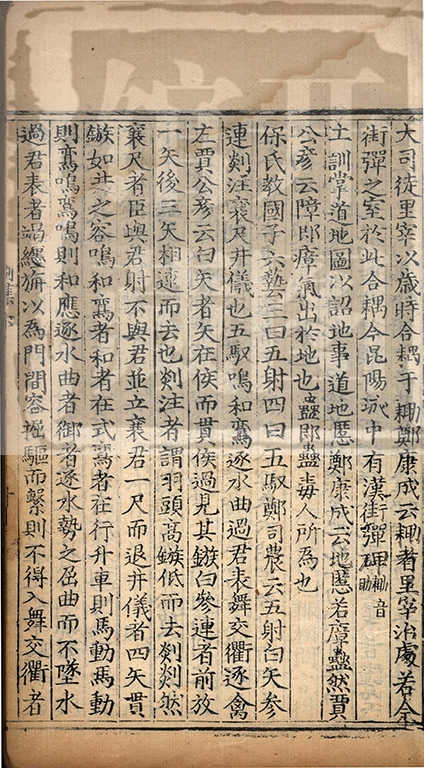 大司徒里宰以歲時合耦于耡鄭康成云耡者里宰治處若今
街彈之室於此合耦今昆陽城中有漢街彈碑耡音助
土訓掌道地圖以詔地事道地慝鄭康成云地慝若瘴蠱然賈
公彥云障即瘴氣出於地也蠱即蠱毒人所為也
保氏教國子六藝三曰五射四曰五馭鄭司農云五射白矢參
連剡注襄尺井儀也五馭鳴和鸞逐水曲過君表舞交衢逐禽
左賈公彥云白矢者矢在侯而貫侯過見其鏃白參連者前放
一矢後三矢相連而去也剡注者謂羽頭高鏃低而去剡剡然
襄尺者臣與君射不與君並立襄君一尺而退井儀者四矢貫
鏃如井之容鳴和鸞者和者在式鸞者在行升車則馬動馬動
則鸞鳴鸞鳴則和應逐水曲者御者逐水勢之屈曲而不墜水
過君表者謁纏旃以為門間容握驅而擊則不得入舞交衢者